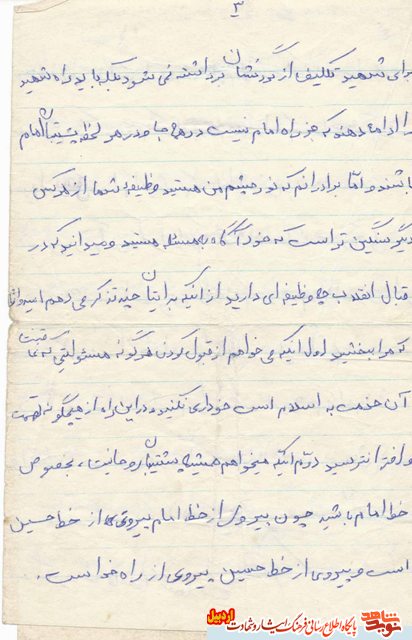 ۳
برای شهید تکلیف از گردنشان برداشته نمی شود بلکه باید راه شهید
را ادامه دهند که جز راه امام نیست در همه جا و در هر لحظه پشتیبان امام
باشند و اما برادرانم که نور چشم من هستید وظیفهٔ شما از هر کس
دیگر سنگین تر است که خود آگاه به مسئله هستید و میدانید که در
قبال انقلاب چه وظیفه ای دارید از اینکه برایتان چند تذکر می دهم امیدوارم
که مرا ببخشید اول اینکه می خواهم از قبول کردن هرگونه مسئولیتی که عاقبت
آن خدمت به اسلام است خودداری نکنید و در این راه از هیچگونه تهمت
و افترا نترسید دوم اینکه میخواهم همیشه پشتیبان روحانیت، بخصوص
خط امام باشید چون پیروی از خط امام پیروی از خط حسین
است و پیروی از خط حسین پیروی از راه خدا است.
نوید شاهد
پایگاه اطلاع رسانی فرهنگ ایثار و شهادت
اردبیل